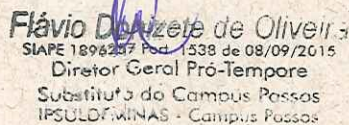 Flávio Donizete de Oliveira
SIAPE 1896257 Port. 1538 de 08/09/2015
Diretor Geral Pró-Tempore
Substituto do Campus Passos
IFSULDEMINAS - Campus Passos